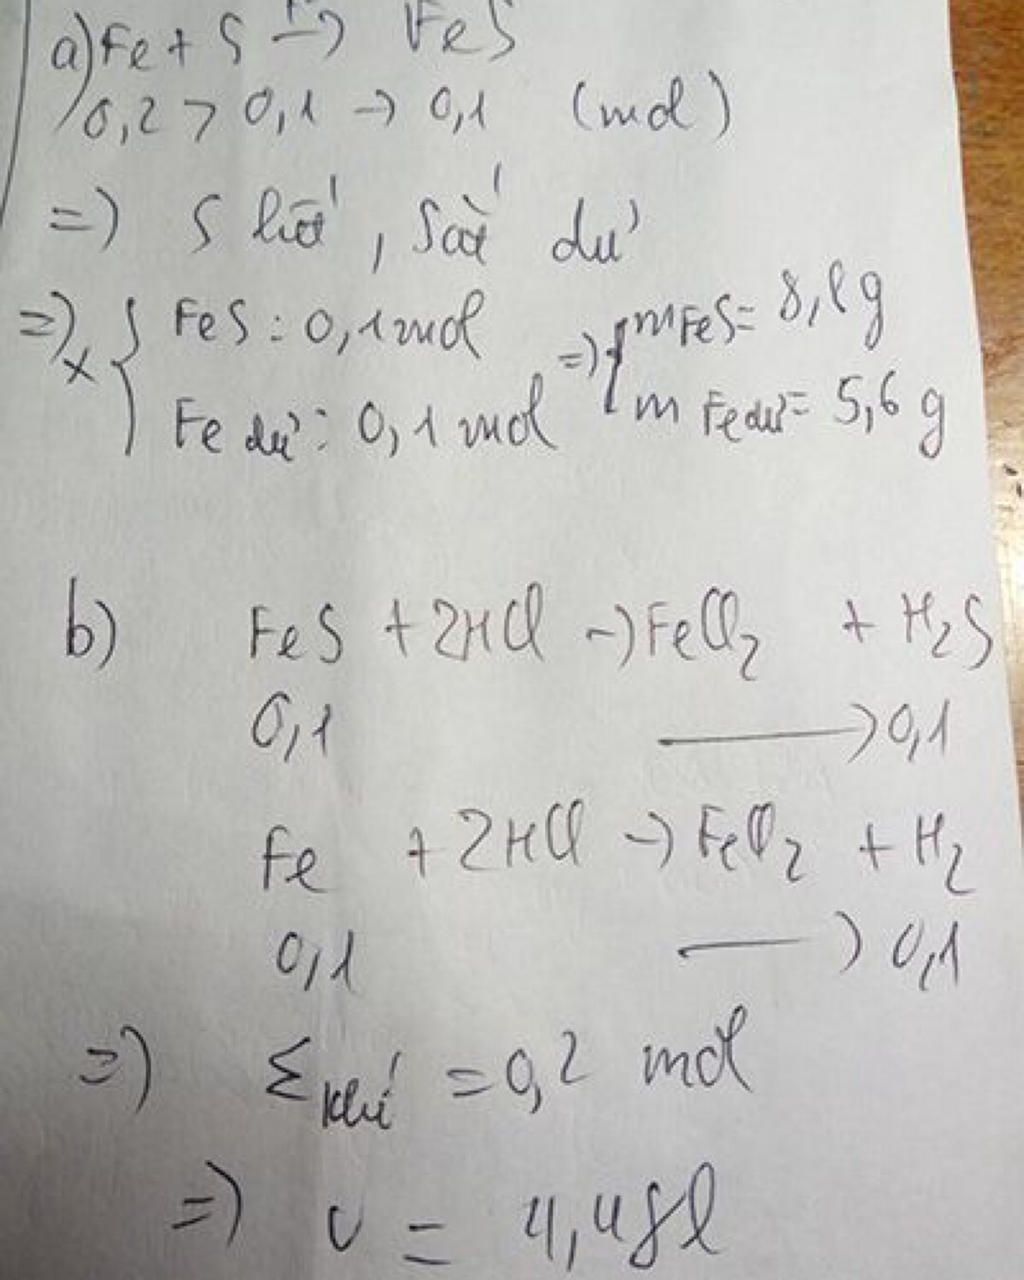 a) Fe + S → FeS
0,2 > 0,1 → 0,1 (mol)
=) S hết, Sắt dư
=) X { FeS : 0,1 mol =) { mFeS = 8,8g
Fe dư : 0,1 mol m Fe dư = 5,6 g
b) FeS + 2HCl → FeCl2 + H2S
0,1 → 0,1
Fe + 2HCl → FeCl2 + H2
0,1 → 0,1
=) Σ khí = 0,2 mol
=) V = 4,48l